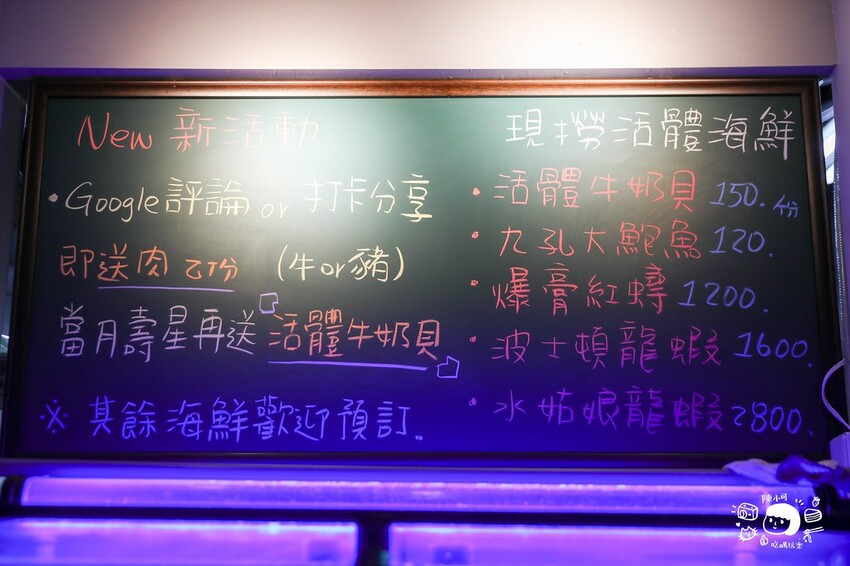 New 新活動
• Google評論 or 打卡分享
即送肉乙份 (牛or豬)
當月壽星再送「活體牛奶貝」
※ 其餘海鮮歡迎預訂.
現撈活體海鮮
• 活體牛奶貝 150. 份
• 九孔大鮑魚 120.
• 爆膏紅蟳 1200.
• 波士頓龍蝦 1600.
• 水姑娘龍蝦 2800.
陳小可
吃喝玩樂